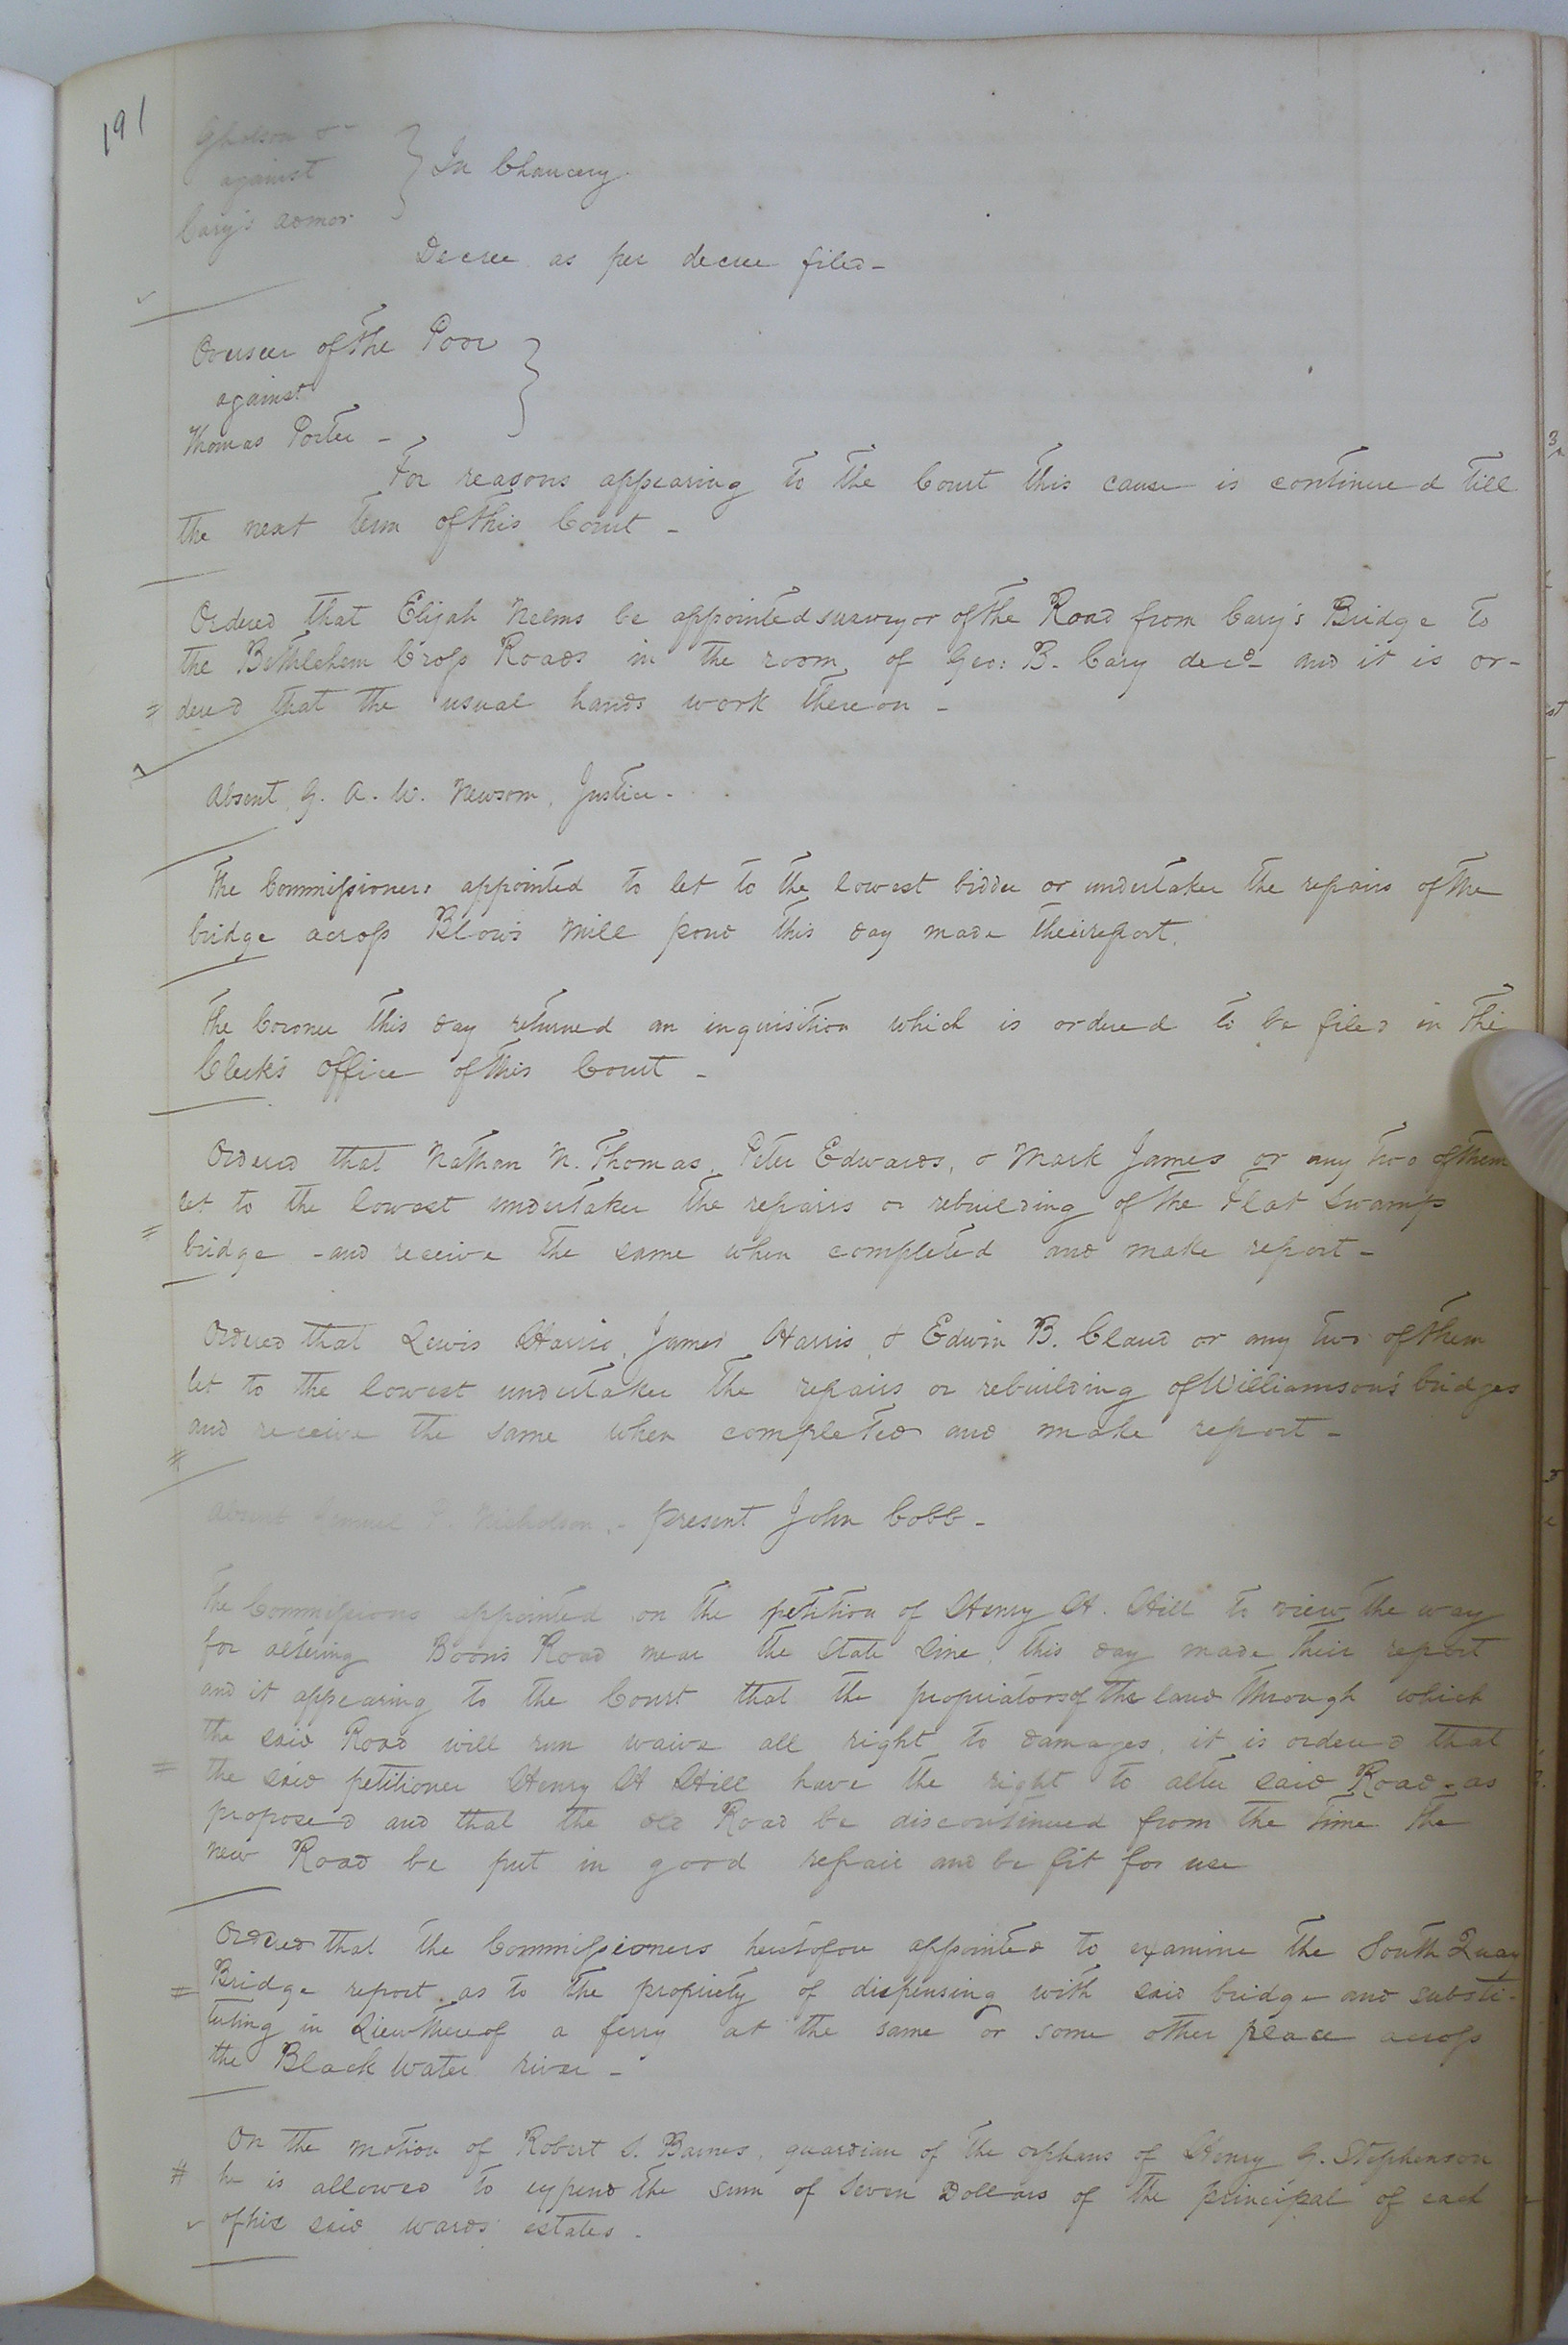 191
Gholson &c
against
Cary's admor.
In Chancery.
Decree as per decree filed -
Overseer of the Poor
against
Thomas Porter -
For reasons appearing to the Court this cause is continued till
the next term of this Court -
Ordered that Elijah Nelms be appointed surveyor of the Road from Cary's Bridge to
the Bethlehem Cross Roads in the room of Geo: B. Cary decd. and it is or-
dered that the usual hands work thereon -
Absent, G. A. W. Newsom, Justice -
The Commissioners appointed to let to the lowest bidder or undertaker the repairs of the
bridge across Blow's Mill pond this day made their report.
The Coroner this day returned an inquisition which is ordered to be filed in the
Clerk's Office of this Court -
Ordered that Nathan N. Thomas, Peter Edwards, & Mark James or any two of them
let to the lowest undertaker the repairs or rebuilding of the Flat Swamp
bridge - and receive the same when completed and make report -
Ordered that Lewis Harris, James Harris, & Edwin B. Claud or any two of them
let to the lowest undertaker the repairs or rebuilding of Williamson's bridges
and receive the same when completed and make report -
Absent Lemuel P. Nicholson, - present John Cobb -
The Commissioners appointed on the petition of Henry H. Hill to view the way
for altering Boon's Road near the State Line, this day made their report
and it appearing to the Court that the propriators of the land through which
the said Road will run waive all right to damages, it is ordered that
the said petitioner Henry H Hill have the right to alter said Road - as
proposed and that the old Road be discontinued from the time the
new Road be put in good repair and be fit for use
Ordered that the Commissioners heretofore appointed to examine the South Quay
Bridge report as to the propriety of dispensing with said bridge and substi-
tuting in Lieu thereof a ferry at the same or some other place across
the Black Water river -
On the motion of Robert S. Barnes, guardian of the orphans of Henry G. Stephenson
he is allowed to expend the sum of Seven Dollars of the principal of each
of his said wards estates -